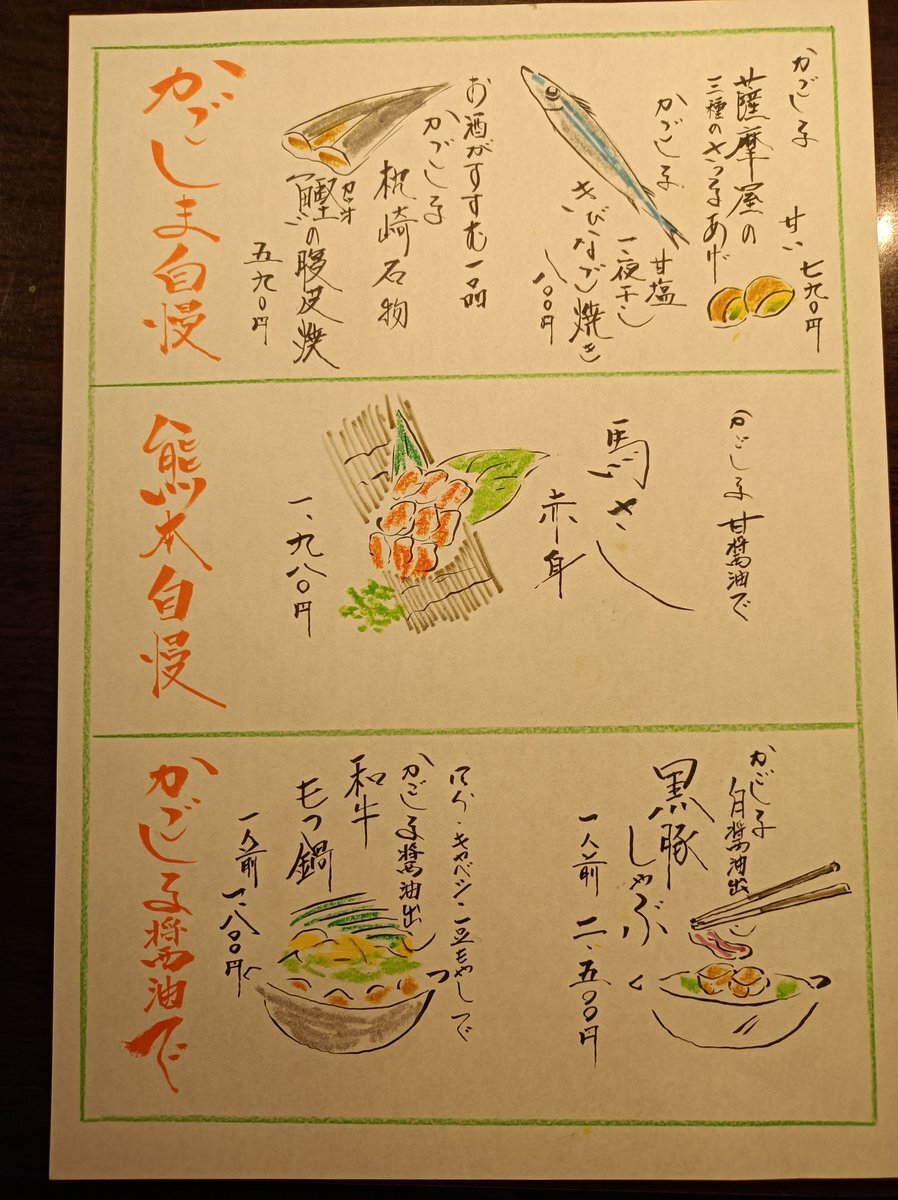 かごしま
薩摩屋の
三種のさつまあげ
甘い 七九〇円
かごしま
甘塩
一、夜干し
きびなご焼き
八〇〇円
お酒がすすむ一品
かごしま
枕崎名物
カツオ
鰹の腹皮焼
五九〇円
かごしま自慢
かごしま甘醤油で
馬さし
赤身
一、九八〇円
熊本自慢
かごしま
白醤油出し
黒豚
しゃぶ
一人前 二、五〇〇円
にら・キャベツ・豆もやしで
かごしま醤油出し
和牛
もつ鍋
一人前 一、八〇〇円
かごしま醤油で